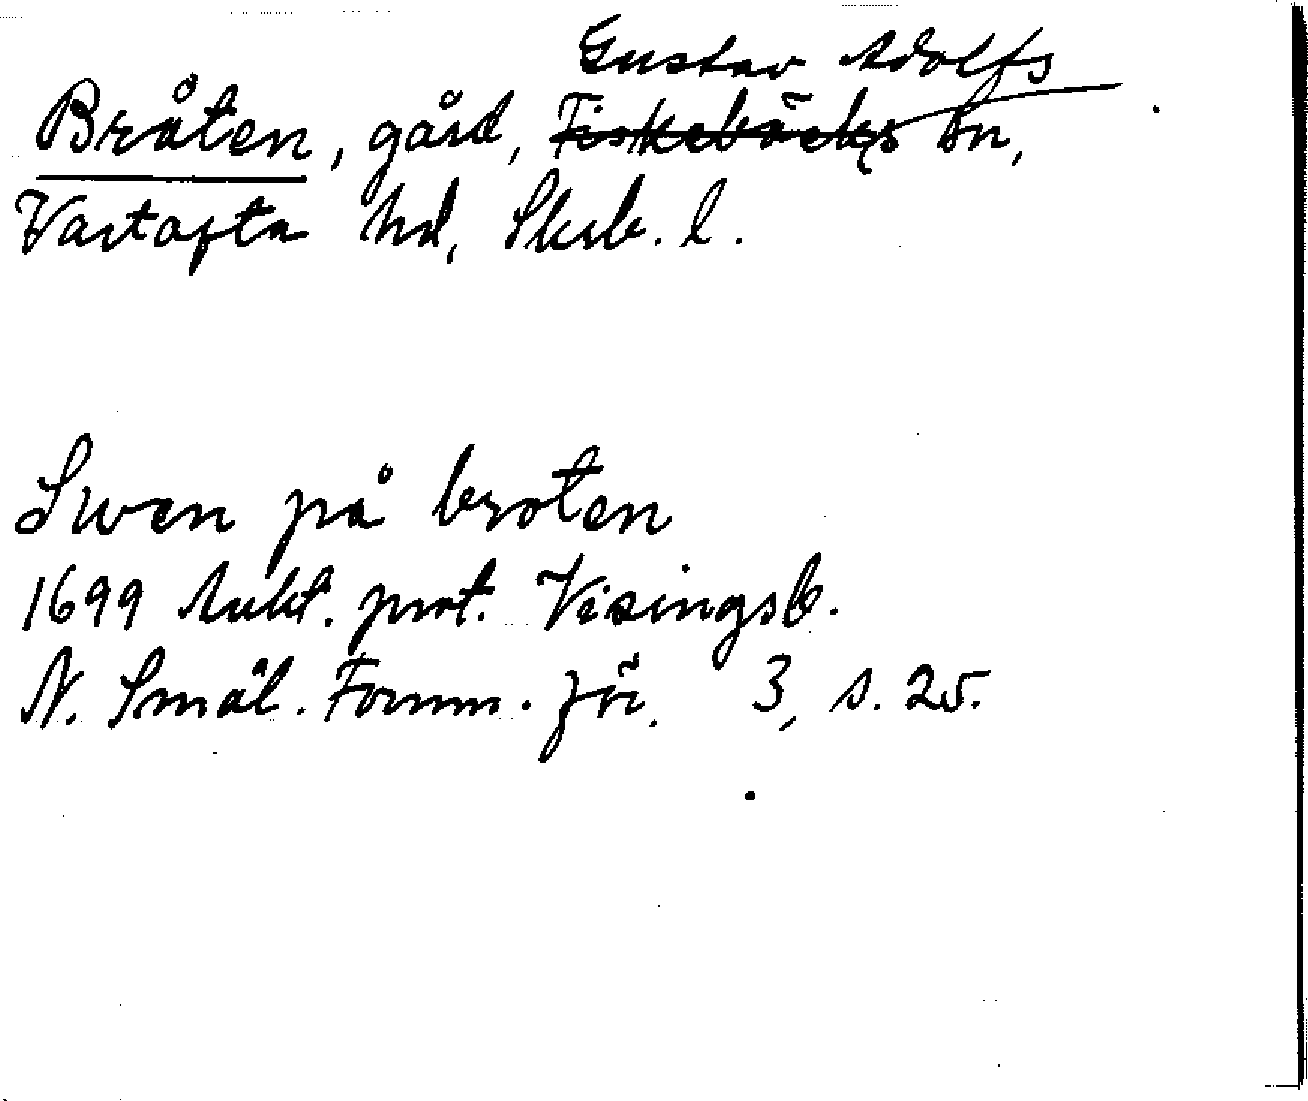 Gustav Adolfs
Bråten, gård, Fiskebäcks sn,
Vartofta hd, Skrb. l.
Swen på broten
1699 Aukt. prot. Visingsb.
N. Smål. Fornm.för. 3, s. 25.